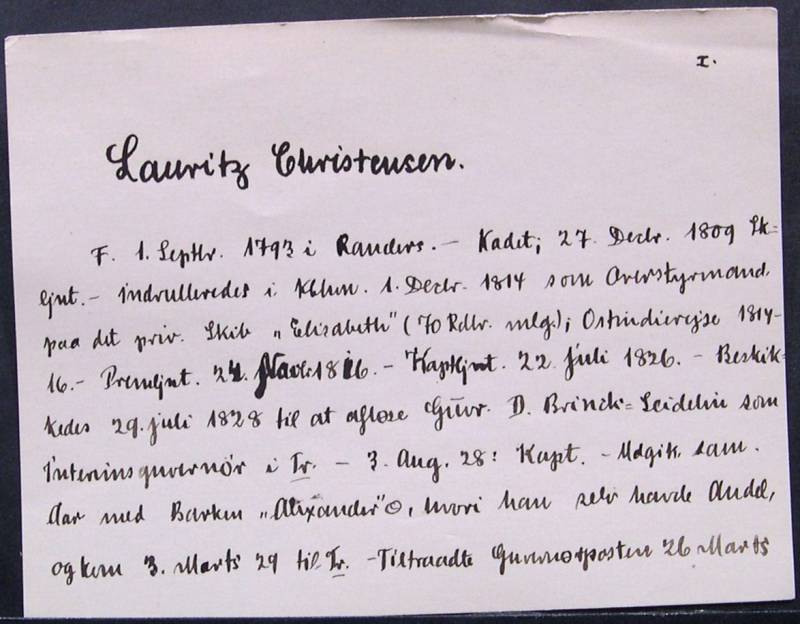 I.
Lauritz Christensen.
F. 1. Septbr. 1793 i Randers. - Kadet; 27. Decbr. 1809 Sk=
ljnt. - indrulleredes i Kbhvn. 1. Decbr. 1814 som Overstyrmand
paa det priv. Skib "Elisabeth" (70 Rdlr. mlg.); Ostindierejse 1814-
16. - Premljnt. 24. Novbr. 1816. - Kaptljnt. 22. juli 1826. - Beskik=
kedes 29. juli 1828 til at afløse Guv. D. Brinck=Seidelin som
Interimsguvernør i Tr. - 3. Aug. 28: Kapt. - Udgik sam.
Aar med Barken "Alexander", hvori han selv havde Andel,
og kom 3. Marts 29 til Tr. - Tiltraadte Guvernørposten 26 Marts